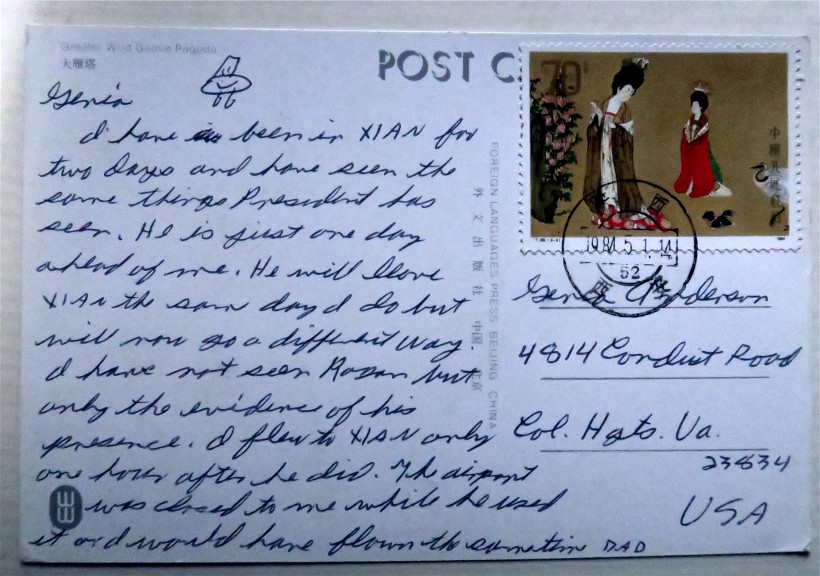 Greater Wild Goose Pagoda
大雁塔
POST C
70
Genia
I have been in XIAN for
two days and have seen the
same things President has
seen. He is just one day
ahead of me. He will leave
XIAN the sam day I do but
will now go a different way.
I have not seen Ragan but
only the evidence of his
presence. I flew to XIAN only
one hour after he did. The airport
was closed to me while he used
it or I would have flown the same tim DAD
外文出版社 中国 北京
FOREIGN LANGUAGES PRESS BEIJING CHINA
1984.5.1.14
52
西
Genia Anderson
4814 Conduit Road
Col. Hgts. Va.
23834
USA